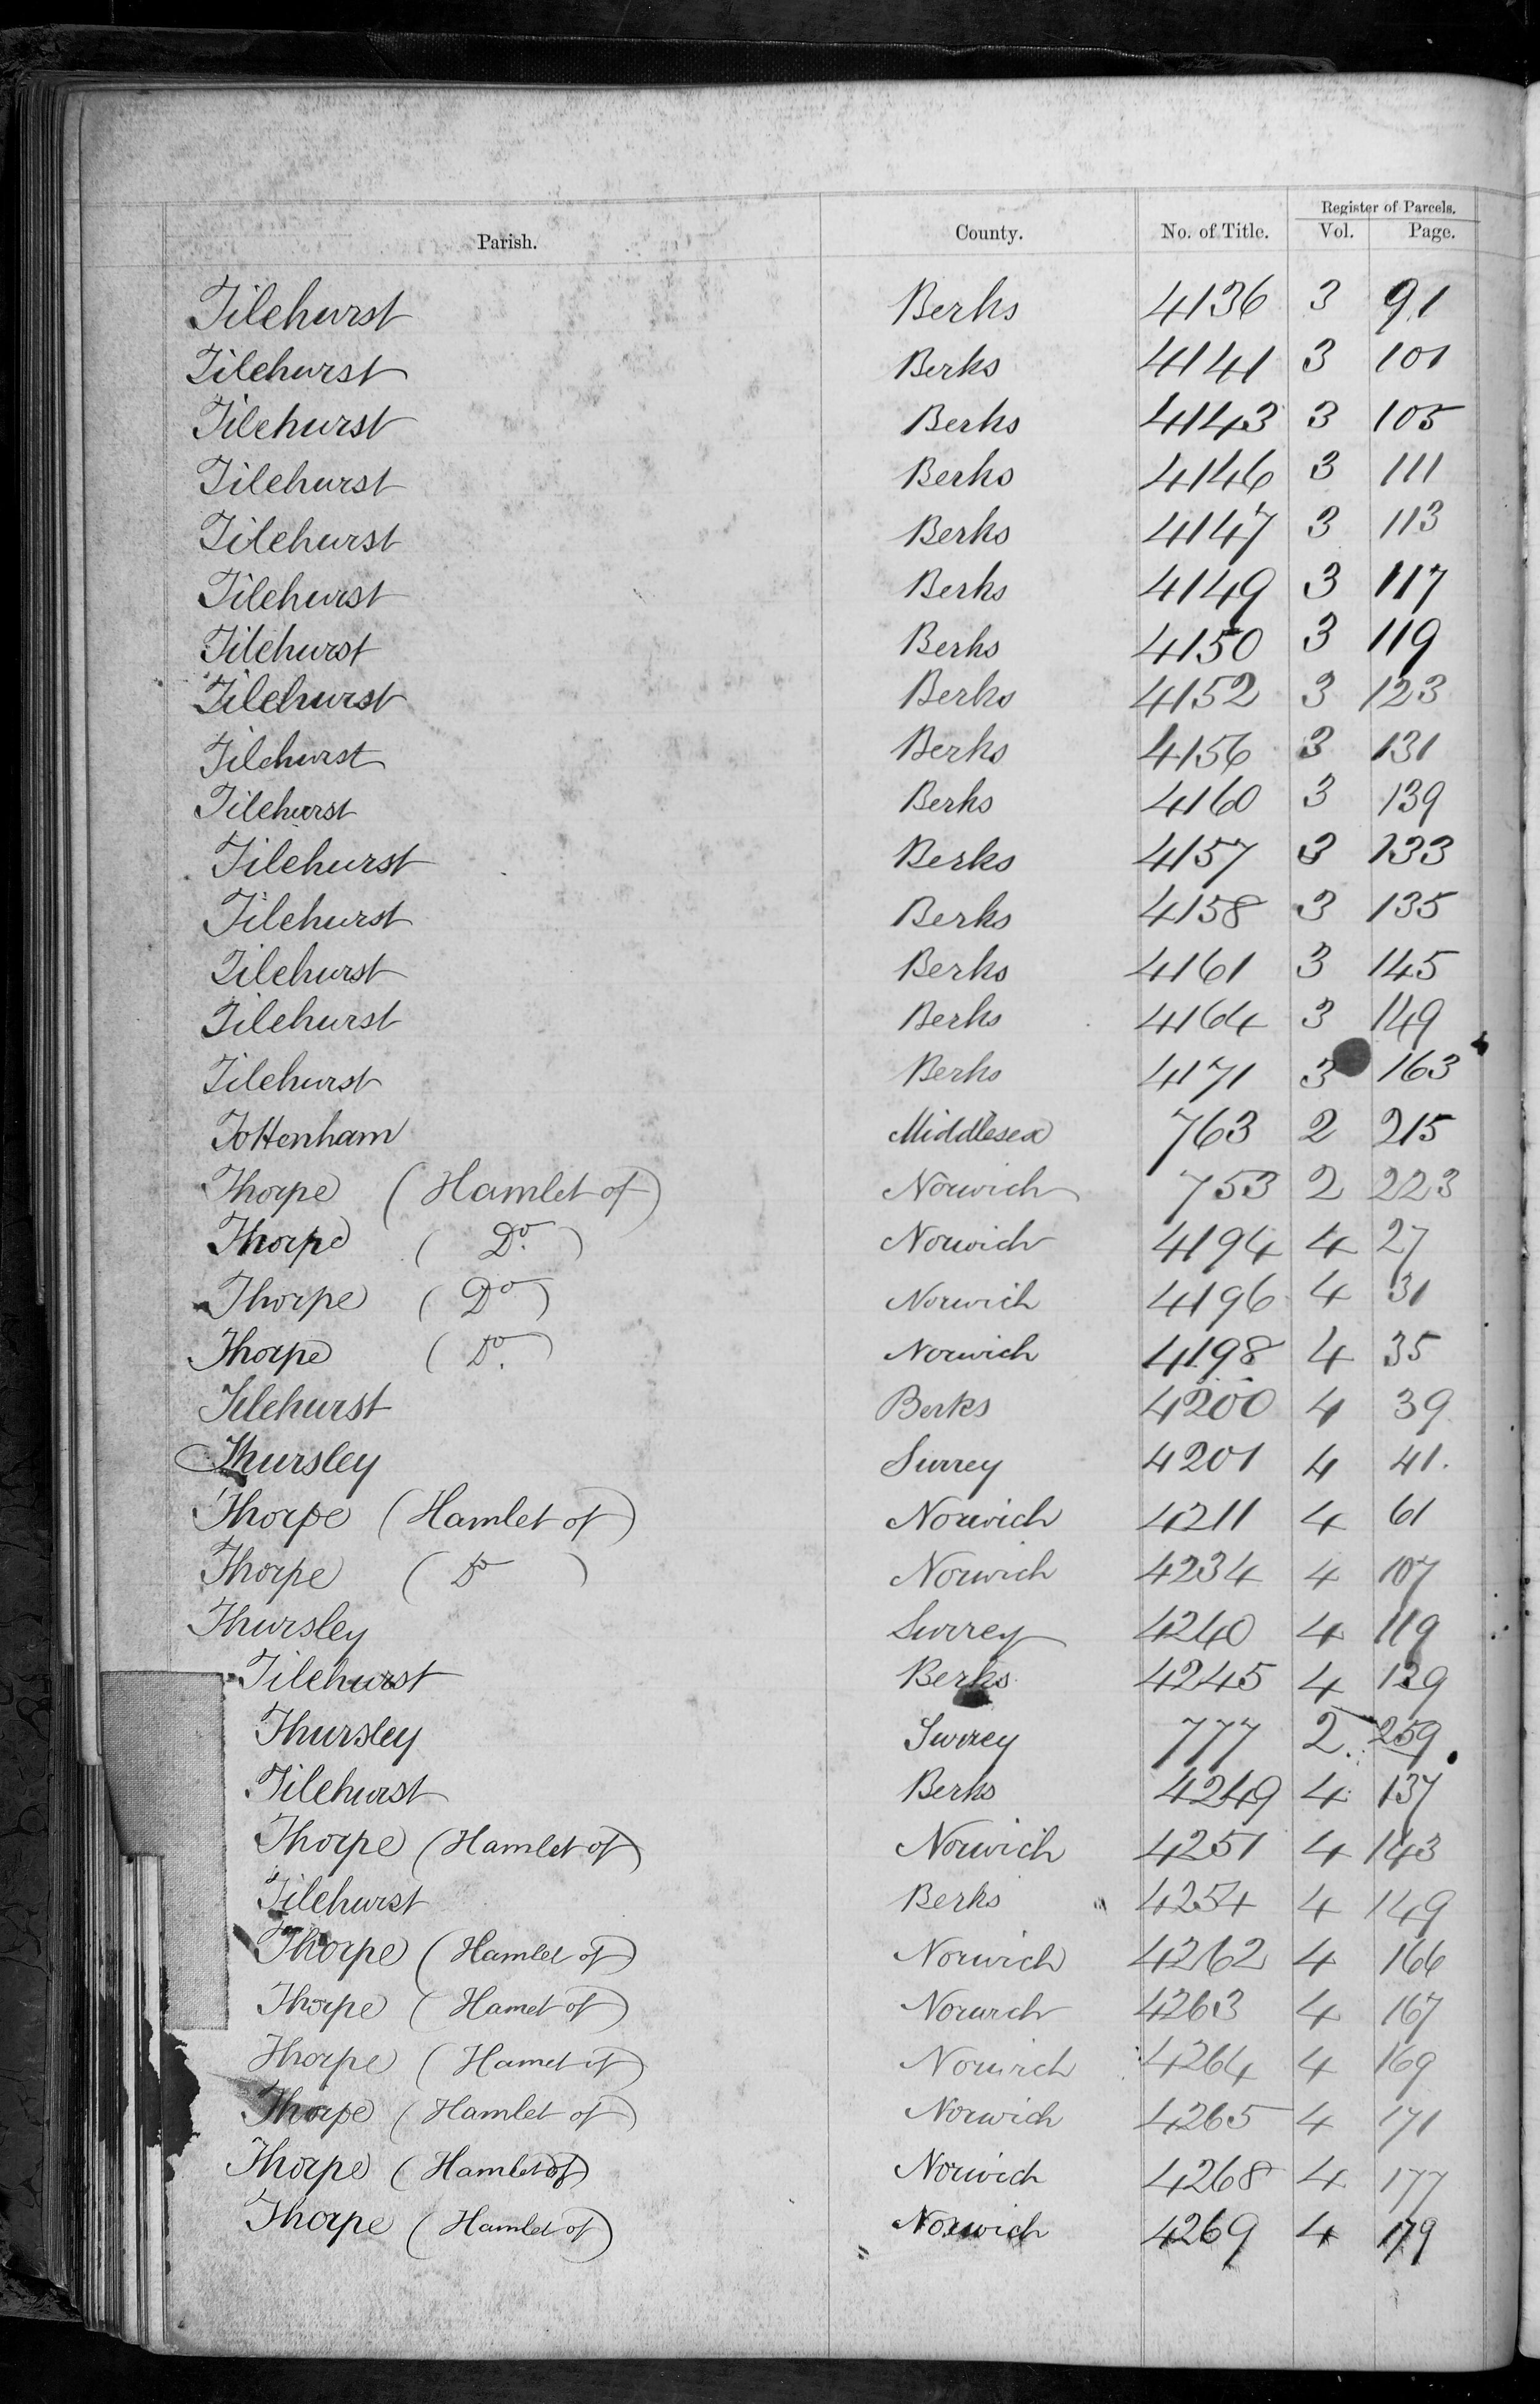 Register of Parcels.
Parish. County. No. of Title. Vol. Page.
Tilehurst Berks 4136 3 91
Tilehurst Berks 4141 3 101
Tilehurst Berks 4143 3 105
Tilehurst Berks 4146 3 111
Tilehurst Berks 4147 3 113
Tilehurst Berks 4149 3 117
Tilehurst Berks 4150 3 119
Tilehurst Berks 4152 3 123
Tilehurst Berks 4156 3 131
Tilehurst Berks 4160 3 139
Tilehurst Berks 4157 3 133
Tilehurst Berks 4158 3 135
Tilehurst Berks 4161 3 145
Tilehurst Berks 4164 3 149
Tilehurst Berks 4171 3 163
Tottenham Middlesex 763 2 215
Thorpe (Hamlet of) Norwich 753 2 223
Thorpe (Do.) Norwich 4194 4 27
Thorpe (Do) Norwich 4196 4 31
Thorpe (Do.) Norwich 4198 4 35
Tilehurst Berks 4200 4 39
Thursley Surrey 4201 4 41.
Thorpe (Hamlet of) Norwich 4211 4 61
Thorpe (Do) Norwich 4234 4 107
Thursley Surrey 4240 4 119
Tilehurst Berks 4245 4 129
Thursley Surrey 777 2 259
Tilehurst Berks 4249 4 137
Thorpe (Hamlet of) Norwich 4251 4 143
Tilehurst Berks 4254 4 149
Thorpe (Hamlet of) Norwich 4262 4 166
Thorpe (Hamet of) Norwich 4263 4 167
Thorpe (Hamet of) Norwich 4264 4 169
Thorpe (Hamlet of) Norwich 4265 4 171
Thorpe (Hamlet of) Norwich 4268 4 177
Thorpe (Hamlet of) Norwich 4269 4 179